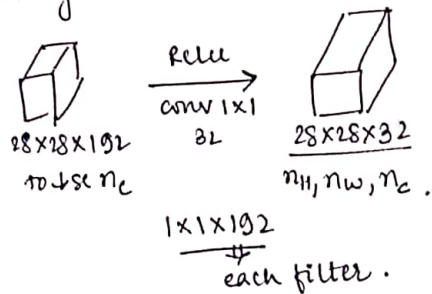 Relu
conv 1x1
32
28x28x192
to ↓se nc
28x28x32
nH, nW, nc.
1x1x192
each filter.